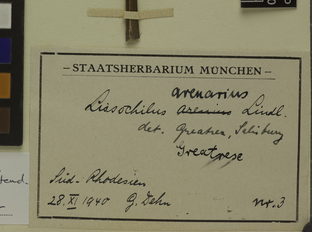 – STAATSHERBARIUM MÜNCHEN –
arenarius
Lissochilus Lindl.
det. Greatrex, Salisbury
Greatrex
Süd-Rhodesien
28. XI 1940 G. Dehn nr. 3